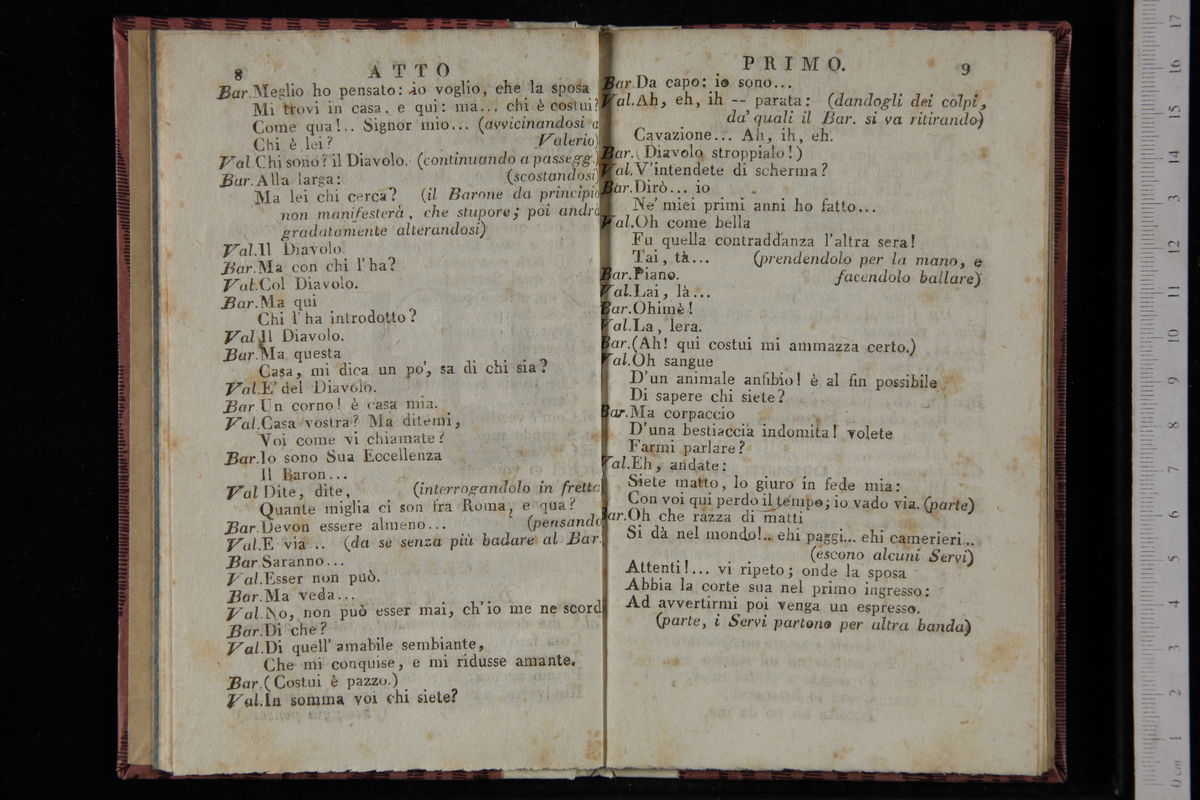 8 ATTO
Bar. Meglio ho pensato: io voglio, che la sposa
Mi trovi in casa, e qui: ma... chi è costui?
Come qua!.. Signor mio... (avvicinandosi a
Chi è lei? Valerio)
Val. Chi sono? il Diavolo. (continuando a passegg.)
Bar. Alla larga: (scostandosi)
Ma lei chi cerca? (il Barone da principio
non manifesterà, che stupore; poi andrà
gradatamente alterandosi)
Val. Il Diavolo.
Bar. Ma con chi l'ha?
Val. Col Diavolo.
Bar. Ma qui
Chi l'ha introdotto?
Val. Il Diavolo.
Bar. Ma questa
Casa, mi dica un po', sa di chi sia?
Val. E' del Diavolo.
Bar. Un corno! è casa mia.
Val. Casa vostra? Ma ditemi,
Voi come vi chiamate?
Bar. Io sono Sua Eccellenza
Il Baron...
Val. Dite, dite, (interrogandolo in fretta
Quante miglia ci son fra Roma, e qua?
Bar. Devon essere almeno... (pensando
Val. E via .. (da se senza più badare al Bar.
Bar. Saranno...
Val. Esser non può.
Bar. Ma veda...
Val. No, non può esser mai, ch'io me ne scord
Bar. Di che?
Val. Di quell' amabile sembiante,
Che mi conquise, e mi ridusse amante.
Bar. (Costui è pazzo.)
Val. In somma voi chi siete?
PRIMO. 9
Bar. Da capo: io sono...
Val. Ah, eh, ih -- parata: (dandogli dei colpi,
da' quali il Bar. si va ritirando)
Cavazione... Ah, ih, eh.
Bar. (Diavolo stroppialo!)
Val. V'intendete di scherma?
Bar. Dirò... io
Ne' miei primi anni ho fatto...
Val. Oh come bella
Fu quella contraddanza l'altra sera!
Tai, tà... (prendendolo per la mano, e
Bar. Piano. facendolo ballare)
Val. Lai, là...
Bar. Ohimè!
Val. La, lera.
Bar. (Ah! qui costui mi ammazza certo.)
Val. Oh sangue
D'un animale anfibio! è al fin possibile
Di sapere chi siete?
Bar. Ma corpaccio
D'una bestiaccia indomita! volete
Farmi parlare?
Val. Eh, andate:
Siete matto, lo giuro in fede mia:
Con voi qui perdo il tempo; io vado via. (parte)
Bar. Oh che razza di matti
Si dà nel mondo!.. ehi paggi... ehi camerieri...
(escono alcuni Servi)
Attenti!... vi ripeto; onde la sposa
Abbia la corte sua nel primo ingresso:
Ad avvertirmi poi venga un espresso.
(parte, i Servi partono per altra banda)
0 cm 1 2 3 4 5 6 7 8 9 10 11 12 13 14 15 16 17